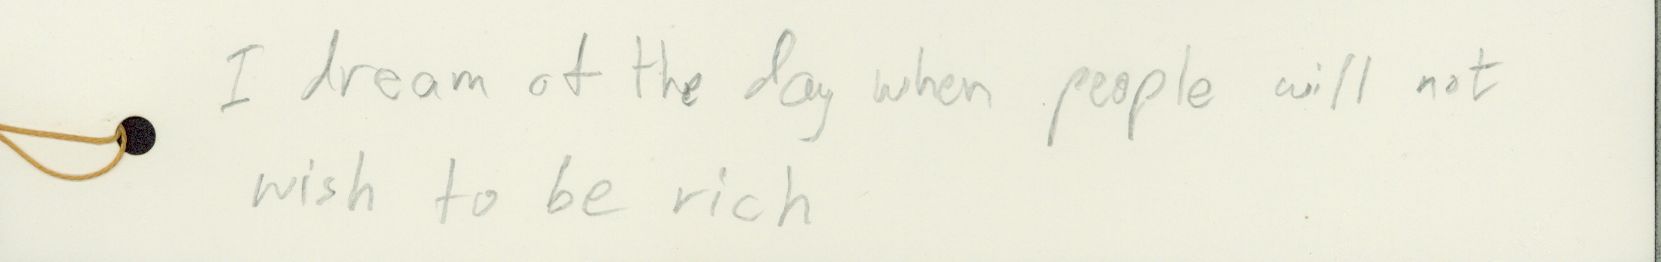 I dream of the day when people will not
wish to be rich